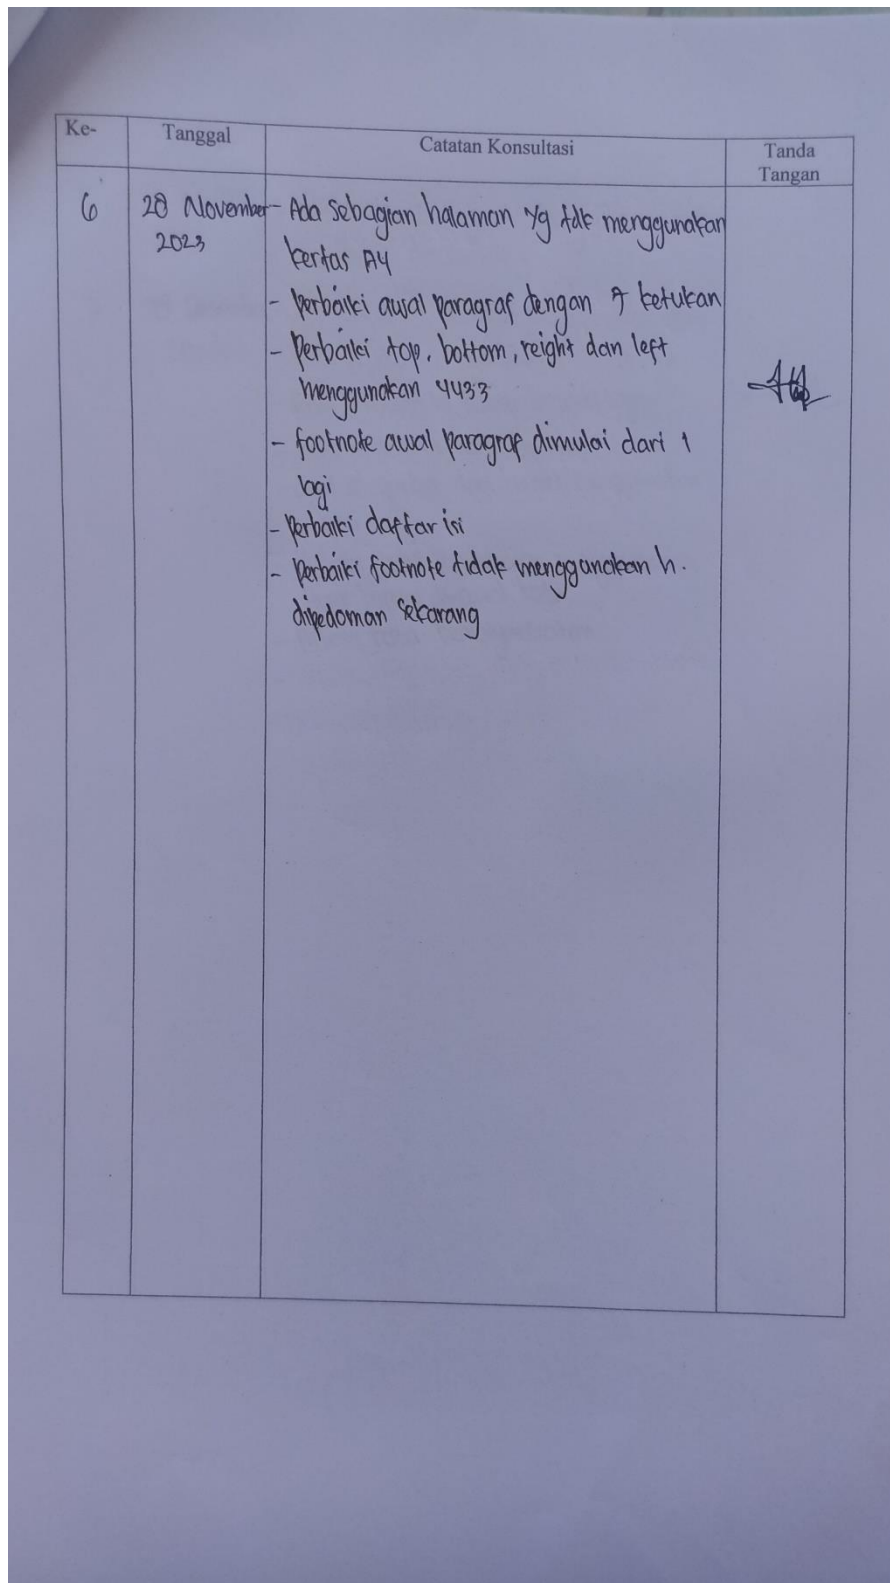 Ke-
Tanggal
Catatan Konsultasi
Tanda
Tangan
6
28 November
2023
- Ada Sebagian halaman yg tdk menggunakan
kertas A4
- Perbaiki awal paragraf dengan 7 ketukan
- Perbaiki top, bottom, reight dan left
menggunakan 4433
- footnote awal paragraf dimulai dari 1
lagi
- Perbaiki daftar isi
- Perbaiki footnote tidak menggunakan h.
dipedoman sekarang